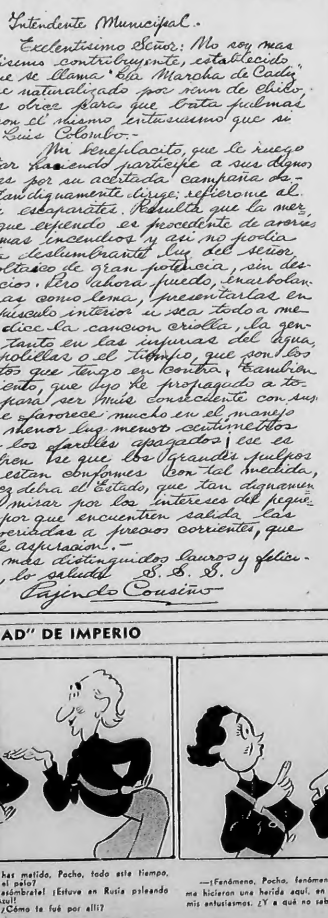 Intendente Municipal.-
Exelentisimo Señor: No soy mas
contribuyente, establecido
se llama "La Marcha de Cadiz"
naturalizado por venir de chico,
obice para que bata pulmas
con el mismo entusiasmo que si
Luis Colombo.-
Mi beneplacito, que le ruego
haciendo participe a sus dignos
por su acertada campaña
tan dignamente dirige; refierome al
escaparates. Resulta que la mer-
que expendo es procedente de averias
mas incendios y asi no podia
deslumbrante luz del señor
voltaico de gran potencia, sin des-
Pero ahora puedo, enarbolan-
como lema, presentarlas en
interior u sea todo a me-
dice la cancion criolla, la gen-
tanto en las injurias del agua,
polillas o el tiempo, que son los
que tengo en contra, tambien
que yo he propagado a to-
para ser mas consecuente con sus
favorece mucho en el manejo
menor luz menos centimetros
los faroles apagados; ese es
se que los grandes pulpos
estan conformes con tal medida,
debia el Estado, que tan dignamen
mirar por los intereses del peque-
por que encuentren salida las
a precios corrientes, que
aspiracion.-
mas distinguidos lauros y felici-
lo saluda S. S. S.
Pajendo Cousiño
AD" DE IMPERIO
has metido, Pocho, todo este tiempo,
el pelo?
asómbrate! ¡Estuve en Rusia peleando
azul!
¿Cómo te fué por allí?
—¡Fenómeno, Pocho, fenómen
me hicieron una herida aquí, en
mis entusiasmos. ¿Y a qué no sab